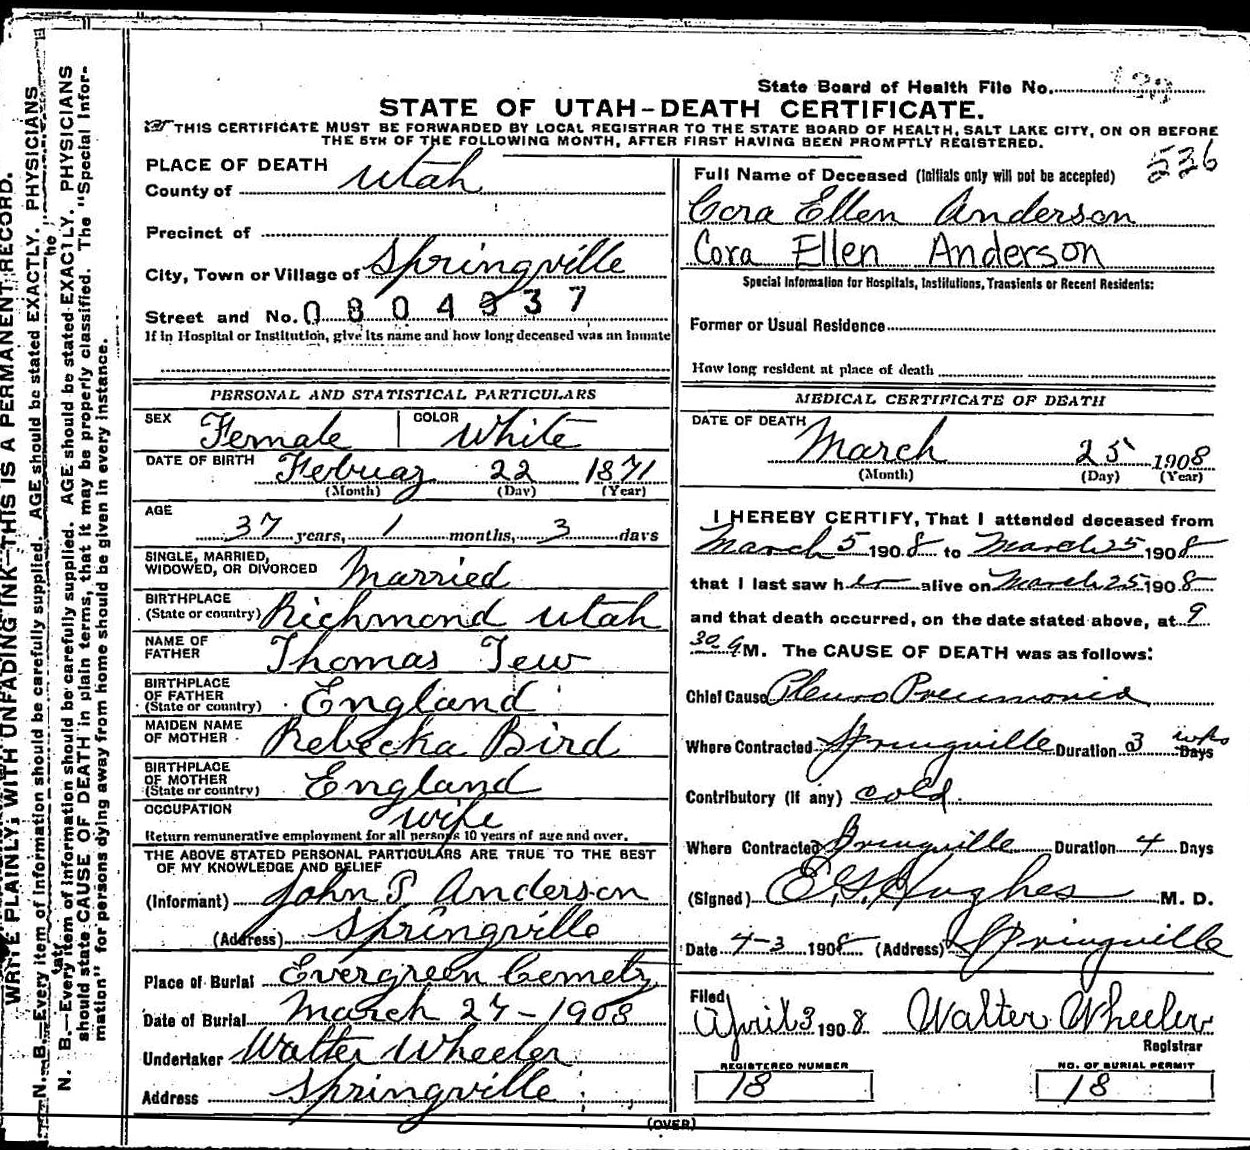 State Board of Health File No.
STATE OF UTAH-DEATH CERTIFICATE.
THIS CERTIFICATE MUST BE FORWARDED BY LOCAL REGISTRAR TO THE STATE BOARD OF HEALTH, SALT LAKE CITY, ON OR BEFORE
THE 5TH OF THE FOLLOWING MONTH, AFTER FIRST HAVING BEEN PROMPTLY REGISTERED.
536
PLACE OF DEATH
County of Utah
Precinct of
City, Town or Village of Springville
Street and No. 0804937
If in Hospital or Institution, give its name and how long deceased was an inmate
PERSONAL AND STATISTICAL PARTICULARS
SEX Female COLOR White
DATE OF BIRTH Februay 22 1871
(Month) (Day) (Year)
AGE
37 years, 1 months, 3 days
SINGLE, MARRIED,
WIDOWED, OR DIVORCED Married
BIRTHPLACE
(State or country) Richmond Utah
NAME OF
FATHER Thomas Tew
BIRTHPLACE
OF FATHER
(State or country) England
MAIDEN NAME
OF MOTHER Rebecka Bird
BIRTHPLACE
OF MOTHER
(State or country) England
OCCUPATION wife
Return remunerative employment for all persons 10 years of age and over.
THE ABOVE STATED PERSONAL PARTICULARS ARE TRUE TO THE BEST
OF MY KNOWLEDGE AND BELIEF
(Informant) John P. Anderson
(Address) Springville
Place of Burial Evergreen Cemety
Date of Burial March 27-1908
Undertaker Walter Wheeler
Address Springville
Full Name of Deceased (Initials only will not be accepted)
Cora Ellen Anderson
Cora Ellen Anderson
Special Information for Hospitals, Institutions, Transients or Recent Residents:
Former or Usual Residence
How long resident at place of death
MEDICAL CERTIFICATE OF DEATH
DATE OF DEATH
March 25 1908
(Month) (Day) (Year)
I HEREBY CERTIFY, That I attended deceased from
March 5 1908 to March 25 1908
that I last saw her alive on March 25 1908
and that death occurred, on the date stated above, at 9
30 a M. The CAUSE OF DEATH was as follows:
Chief Cause Pleuro Pneumonia
Where Contracted Springville Duration 3 wks Days
Contributory (if any) cold
Where Contracted Springville Duration 4 Days
(Signed) E G Hughes M. D.
Date 4-3 1908 (Address) Springville
Filed
April 3 1908 Walter Wheeler
Registrar
REGISTERED NUMBER
18
NO. OF BURIAL PERMIT
18
(OVER)
WRITE PLAINLY, WITH UNFADING INK—THIS IS A PERMANENT RECORD.
N. B.—Every item of information should be carefully supplied. AGE should be stated EXACTLY. PHYSICIANS
N. B.—Every item of information should be carefully supplied. AGE should be stated EXACTLY. PHYSICIANS
should state CAUSE OF DEATH in plain terms, that it may be properly classified. The "Special Infor-
mation" for persons dying away from home should be given in every instance.